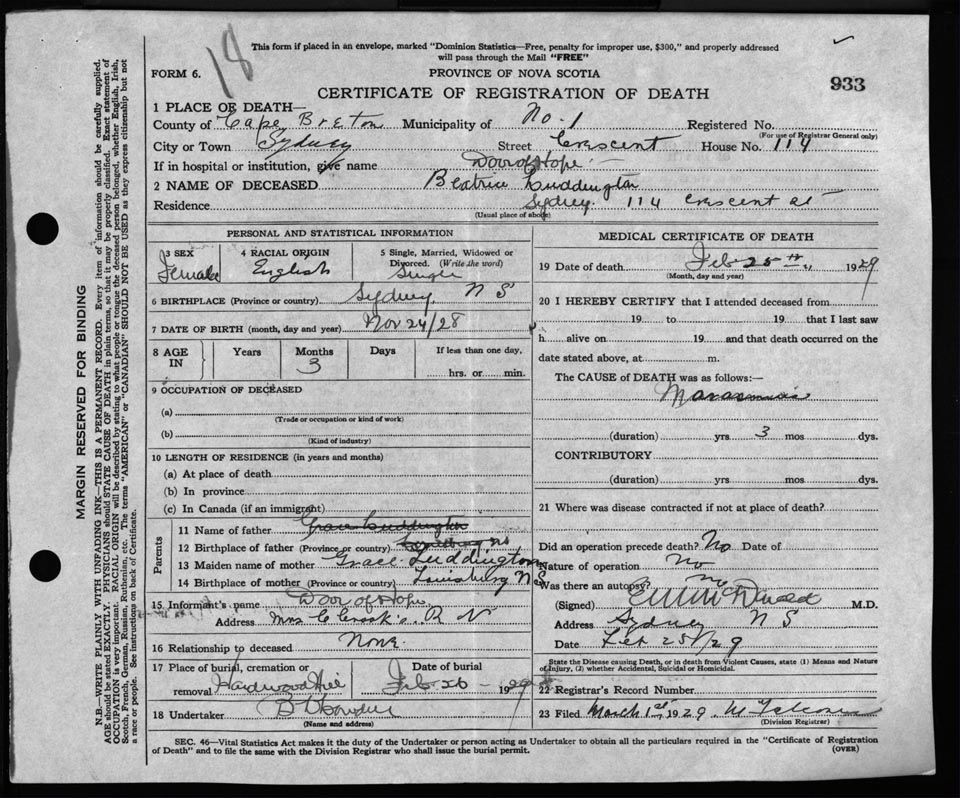 18
This form if placed in an envelope, marked "Dominion Statistics—Free, penalty for improper use, $300," and properly addressed
will pass through the Mail "FREE"
FORM 6.
PROVINCE OF NOVA SCOTIA
933
CERTIFICATE OF REGISTRATION OF DEATH
1 PLACE OF DEATH—
County of Cape Breton Municipality of No. 1 Registered No.
(For use of Registrar General only)
City or Town Sydney Street Crescent House No. 114
If in hospital or institution, give name Door of Hope
2 NAME OF DECEASED Beatrice Luddington
Residence Sydney. 114 Crescent St
(Usual place of abode)
PERSONAL AND STATISTICAL INFORMATION
3 SEX Female
4 RACIAL ORIGIN English
5 Single, Married, Widowed or Divorced. (Write the word) Single
6 BIRTHPLACE (Province or country) Sydney, N S
7 DATE OF BIRTH (month, day and year) Nov 24/28
8 AGE IN Years Months 3 Days If less than one day, hrs. or min.
9 OCCUPATION OF DECEASED
(a)
(Trade or occupation or kind of work)
(b)
(Kind of industry)
10 LENGTH OF RESIDENCE (in years and months)
(a) At place of death
(b) In province
(c) In Canada (if an immigrant)
Parents
11 Name of father Grace Luddington
12 Birthplace of father (Province or country)
13 Maiden name of mother Grace Luddington
14 Birthplace of mother (Province or country) Louisburg N S
15 Informant's name Door of Hope
Address Mrs C Crook's. R N
16 Relationship to deceased None.
17 Place of burial, cremation or removal Hardwood Hill
Date of burial Feb 26 - 1929
18 Undertaker
(Name and address)
MEDICAL CERTIFICATE OF DEATH
19 Date of death Feb 25th, 1929
(Month, day and year)
20 I HEREBY CERTIFY that I attended deceased from
19 to 19 that I last saw
h alive on 19 and that death occurred on the
date stated above, at m.
The CAUSE of DEATH was as follows:—
Marasmus
(duration) yrs 3 mos dys.
CONTRIBUTORY
(duration) yrs mos dys.
21 Where was disease contracted if not at place of death?
Did an operation precede death? No Date of
Nature of operation No
Was there an autopsy?
(Signed) M.D.
Address Sydney N S
Date Feb 25/29
State the Disease causing Death, or in death from Violent Causes, state (1) Means and Nature
of Injury, (2) whether Accidental, Suicidal or Homicidal.
22 Registrar's Record Number
23 Filed March 1st 1929.
(Division Registrar)
SEC. 46—Vital Statistics Act makes it the duty of the Undertaker or person acting as Undertaker to obtain all the particulars required in the "Certificate of Registration
of Death" and to file the same with the Division Registrar who shall issue the burial permit.
(OVER)
MARGIN RESERVED FOR BINDING
N.B.—WRITE PLAINLY WITH UNFADING INK—THIS IS A PERMANENT RECORD. Every item of information should be carefully supplied.
AGE should be stated EXACTLY. PHYSICIANS should STATE CAUSE OF DEATH in plain terms, so that it may be properly classified. Exact statement of
OCCUPATION is very important. RACIAL ORIGIN will be described by stating to what people or tongue the deceased person belonged, whether English, Irish,
Scotch, French, German, Russian, Ruthenian, etc. The terms "AMERICAN" or "CANADIAN" SHOULD NOT BE USED as they express citizenship but not
a race or people. See instructions on back of Certificate.